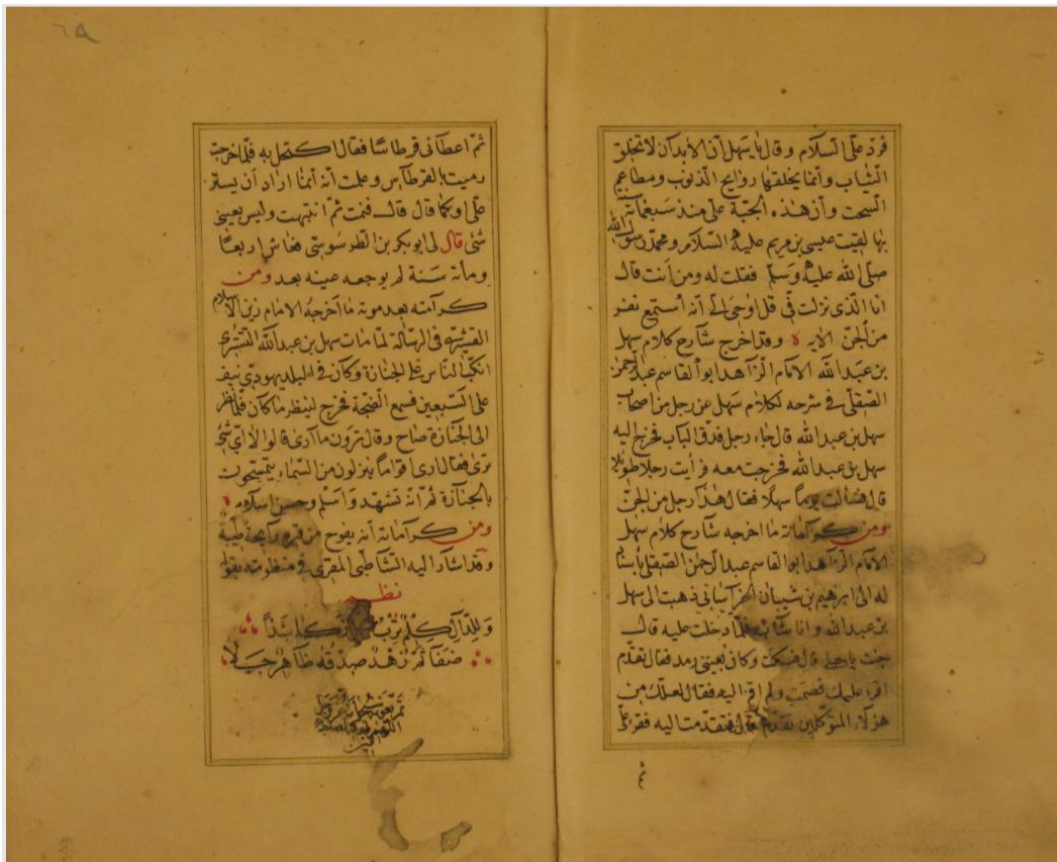 فردّ علىّ السلام وقال يا سهل ان الابدان لا تخلق
الثياب وانما يخلقها روايح الذنوب ومطاعم
السحت وان هذه الجبة علىّ منذ سبعمائة سنة
بها لقيت عيسى بن مريم عليه السلام ومحمد رسول الله
صلى الله عليه وسلم فقلت له ومن انت قال
انا الذى نزلت فىّ قل اوحى الىّ انه استمع نفر
من الجن الايه ه وقد اخرج شارح كلام سهل
بن عبد الله الامام الزاهد ابو القاسم عبد الرحمن
الصقلّى فى شرحه لكلام سهل عن رجل من اصحاب
سهل بن عبد الله قال جاء رجل فدق الباب فخرج اليه
سهل بن عبد الله فخرجت معه فرأيت رجلا طويلا
قال فسالت يوما سهلا فقال هذا رجل من الجن
ومن كراماته ما اخرجه شارح كلام سهل
الامام الزاهد ابو القاسم عبد الرحمن الصقلى باسناد
له الى ابرهيم بن شيبان الخراسانى ذهبت الى سهل
بن عبد الله وانا شاب فلما دخلت عليه قال
جئت يا قال فسكت وكان بعينى رمد فقال تقدم
اقرء عليك فصمت ولم اقرء اليه فقال لعلك من
هؤلاء المتوكلين تقدم قال فتقدمت اليه فقرء علىّ
ثم
٦٨
ثم اعطانى قرطاسا فقال اكتحل به فلما خرجت
رميت بالقرطاس وعلمت انه انما اراد ان يستر
علىّ او كما قال قال فنمت ثم انتبهت وليس بعينى
شئ قال لى ابو بكر بن الطرسوسى فعاش اربعا
ومائة سنة لم يوجعه عينه بعد ومن
كرامته بعد موته ما اخرجه الامام زين الاسلام
القشيرى فى الرسالة لما مات سهل بن عبد الله التسترى
انكبّ الناس على الجنازة وكان فى البلد يهودى نيف
على السبعين فسمع الضجة فخرج لينظر ما كان فلما نظر
الى الجنازة صاح وقال ترون ما ارى قالوا لا اى شئ
ترى فقال ارى اقواما ينزلون من السماء يتمسحون
بالجنازة ثم انه تشهد واسلم وحسن اسلامه ه
ومن كراماته انه يفوح من قبره رايحة طيبة
وقد اشار اليه الشاطبى المقرى فى منظومته بقوله
نظم
وللدال كلم ترب سهل ذكا شذا
ضفا ثم زهد صدقه ظاهر جلا